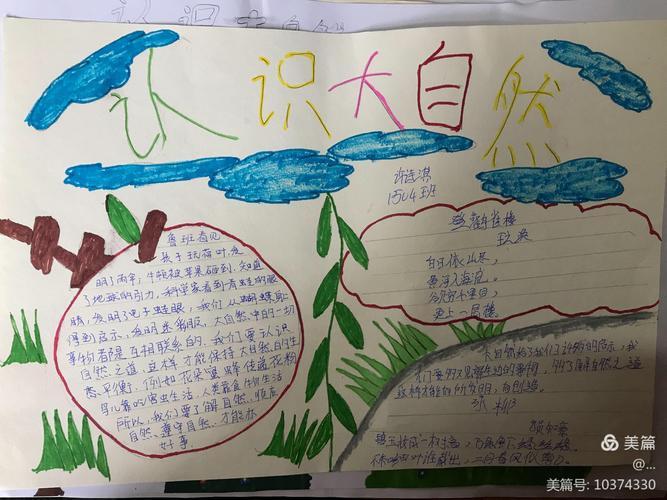 认识大自然
许诺淇
1504班
鲁班看见
孩子玩荷叶,发
明了雨伞;牛顿被苹果砸到,知道
了地球的引力,科学家看到青蛙的眼
睛,发明了电子蛙眼,我们从蝴蝶身上
得到启示,发明迷彩服,大自然中的一切
事物都是互相联系的,我们要认识
自然之道,这样才能保持大自然的生
态平衡,例如花朵凋谢传播花粉
鸟儿靠吃害虫生活,人类靠食物生活
所以,我们要了解自然,顺应
自然、遵守自然,才能办
好事。
登鹳雀楼
白日依山尽,
黄河入海流。
欲穷千里目,
更上一层楼
大自然给了我们许多的启示,我
们要
这样才能有所发明,有创造。
咏柳
贺知章
碧玉妆成一树高,万条垂下绿丝绦。
不知细叶谁裁出,二月春风似剪刀。
美篇
@...
美篇号: 10374330